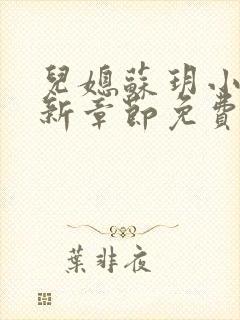 兒媳蘇玥小
新章節免費
葉非夜